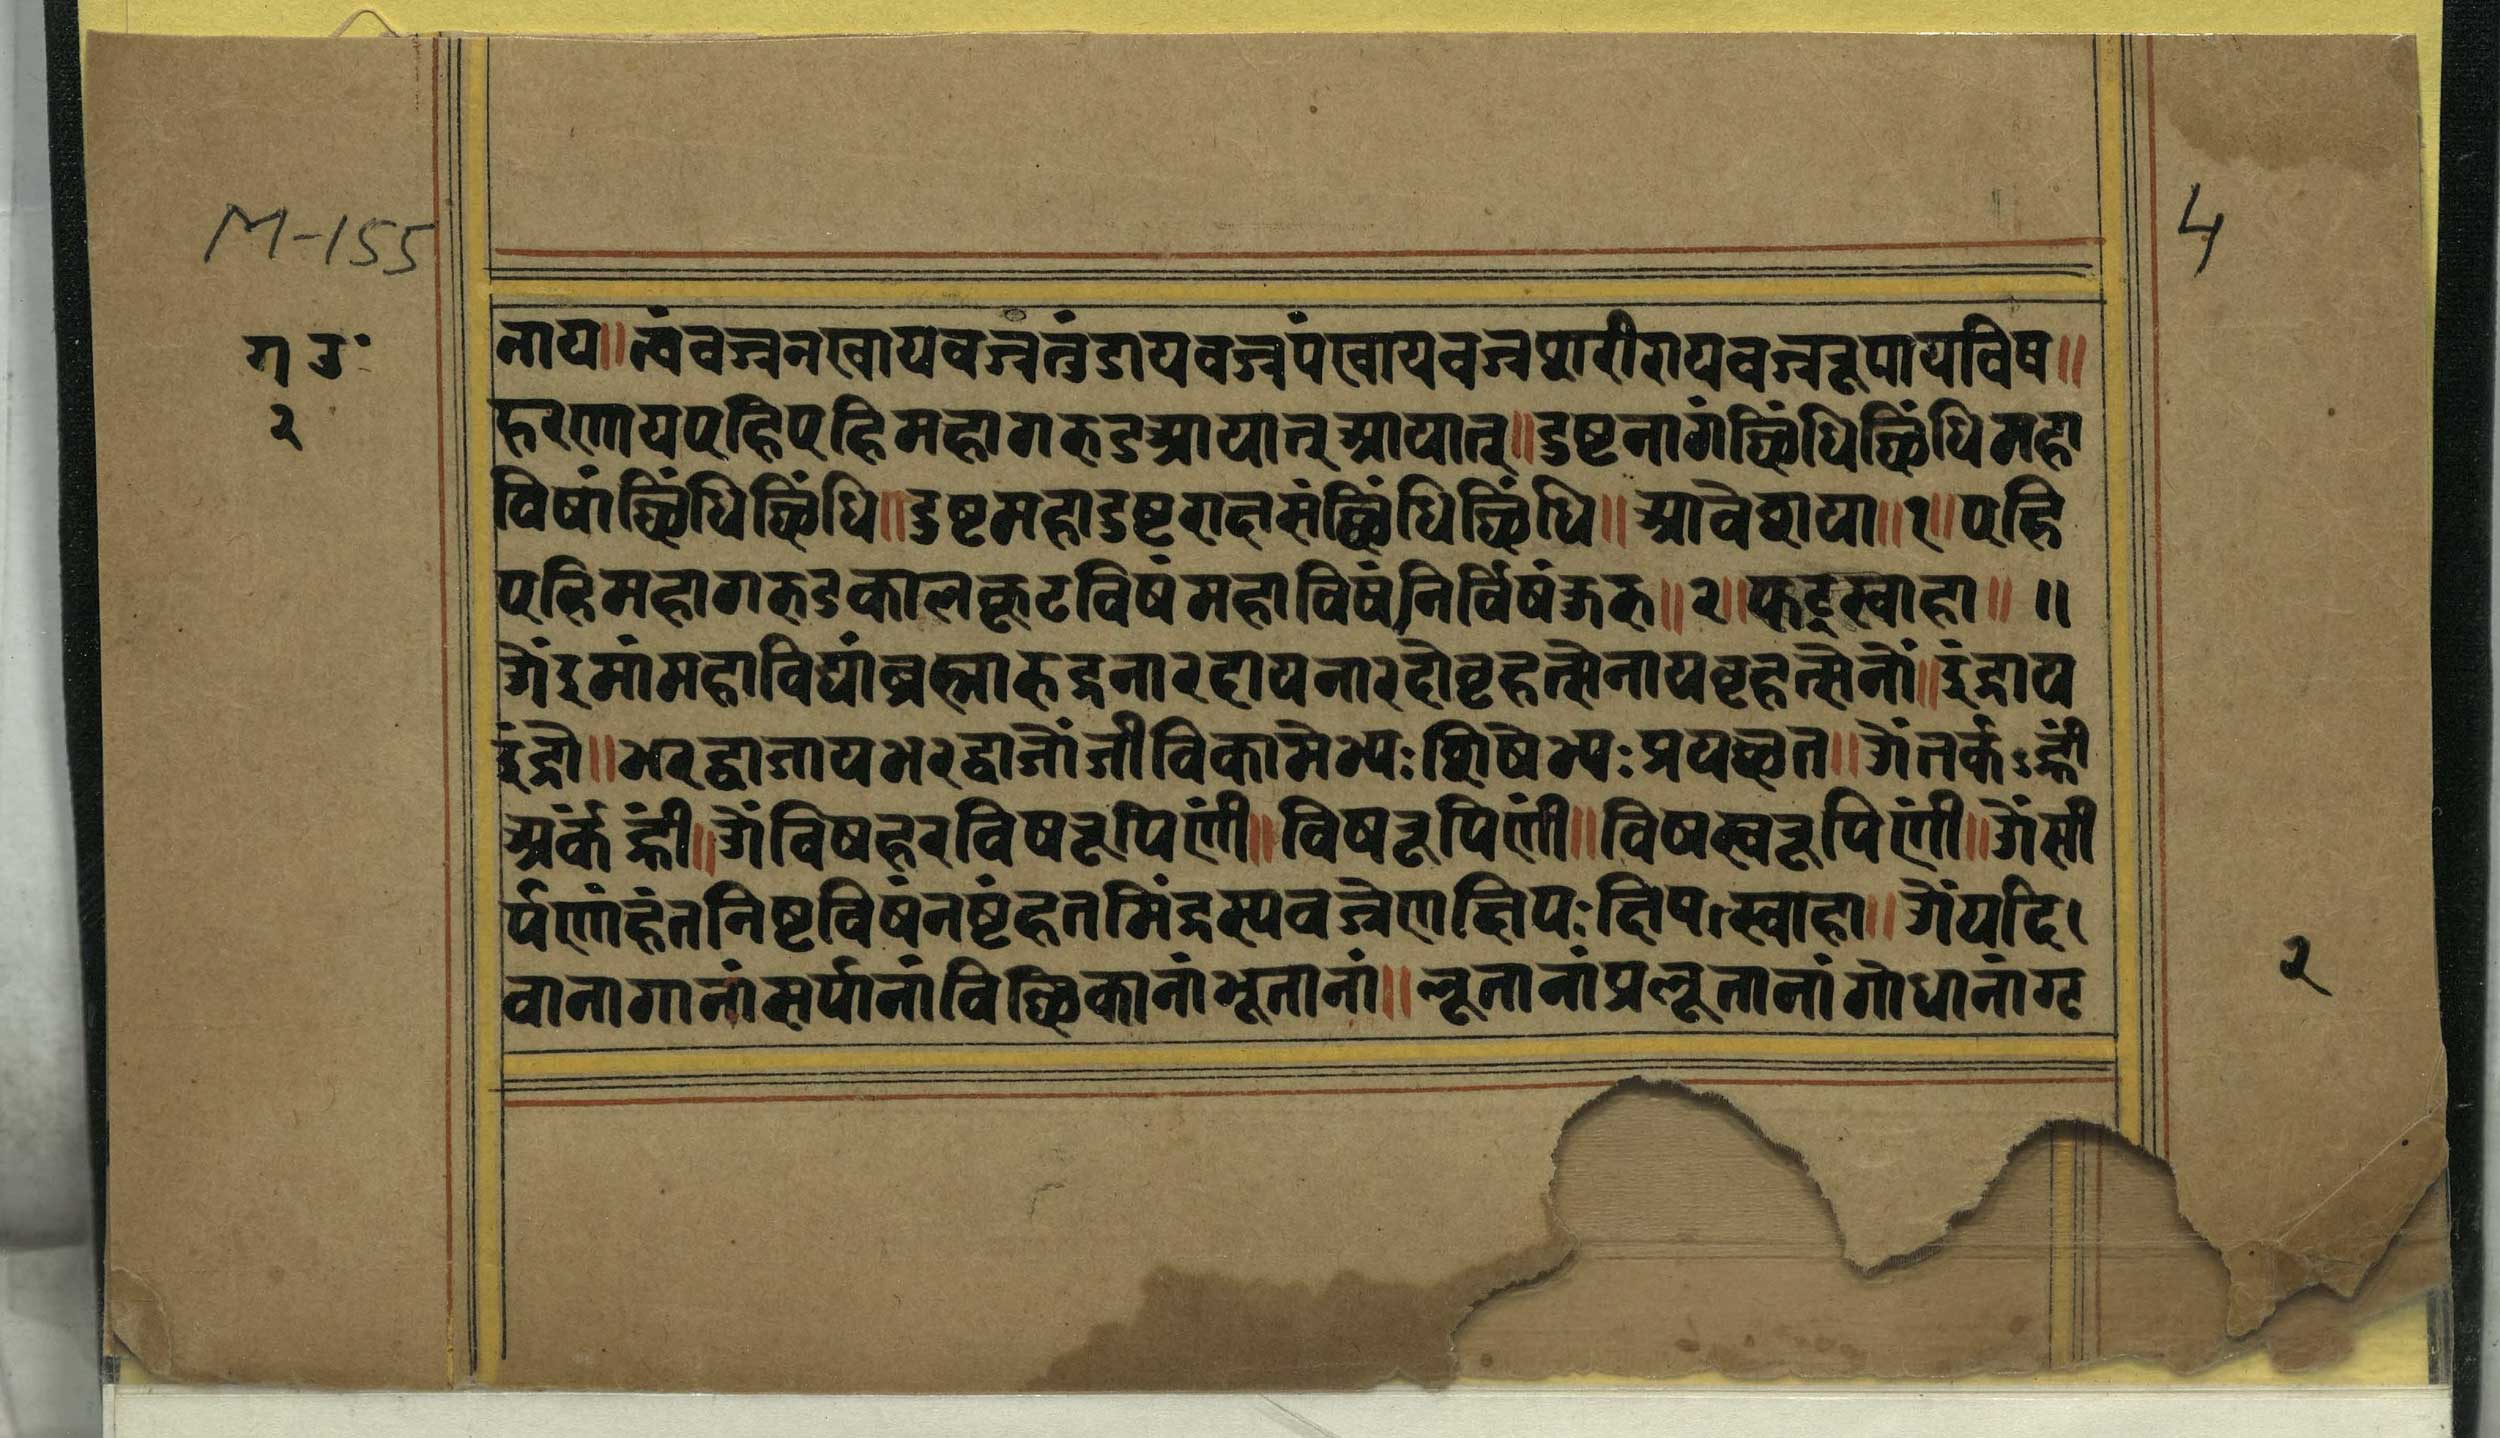 M-155
4
ग उ॰
२
नाय॥ त्वंवज्रनखायवज्रतुंडायवज्रपंखायवज्रशरीरायवज्ररूपायविष॥
हरणायएहिएहिमहागरुडआयातुआयातु॥ दुष्टनागंछिंधिछिंधिमहा
विषांछिंधिछिंधि॥ दुष्टमहादुष्टराक्षसंछिंधिछिंधि॥ आवेशाया॥१॥ एहि
एहिमहागरुडकालकूटविषंमहाविषंनिर्विषंकुरु॥२॥ फट्स्वाहा॥ ॥
ॐइमांमहाविद्यांब्रह्मारुद्रनारदायनारदोवृहत्सेनायवृहत्सेनों॥ इंद्राय
इंद्रो॥ भरद्वाजायभरद्वाजोंजीविकामेभ्यः शिषेभ्यः प्रयछत॥ ॐतर्कऽह्रीं
अर्कंह्रीं॥ ॐविषहरविषरूपिणीं॥ विषरूपिणीं॥ विषस्वरूपिणीं॥ ॐसी
र्पणांहंतनिष्टविषंनष्टंहतमिंद्रस्यवज्रेणक्षिपः क्षिप।स्वाहा॥ ॐयदि।
वानागानांसर्पानांविछिकानांभूतानां॥ लूतानांप्रलूतानांगोधानांगृ
२